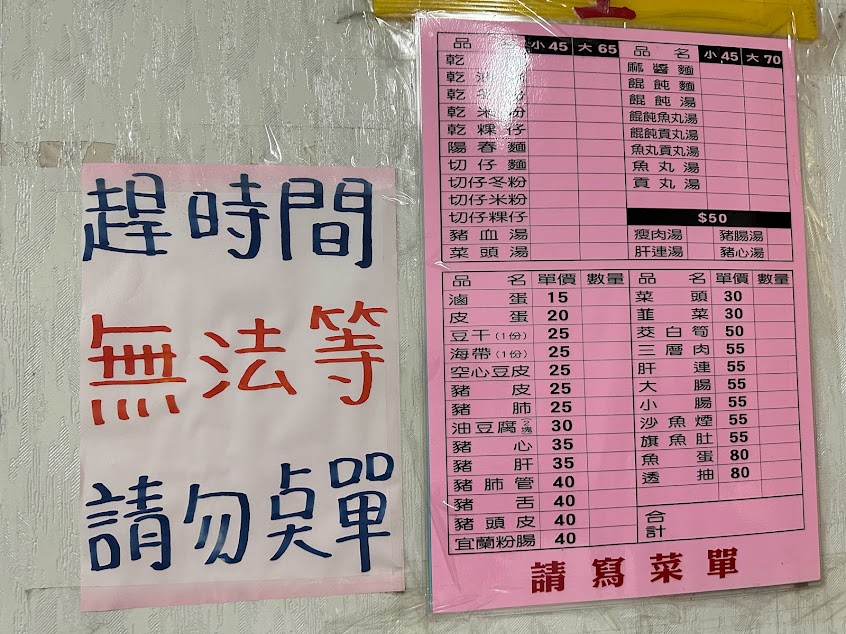 趕時間
無法等
請勿點單
品 名 小45 大65
乾
乾
乾
乾米粉
乾粿仔
陽春麵
切仔麵
切仔冬粉
切仔米粉
切仔粿仔
豬血湯
菜頭湯
品 名 小45 大70
麻醬麵
餛飩麵
餛飩湯
餛飩魚丸湯
餛飩貢丸湯
魚丸貢丸湯
魚丸湯
貢丸湯
$50
瘦肉湯 豬腸湯
肝連湯 豬心湯
品 名 單價 數量
滷蛋 15
皮蛋 20
豆干(1份) 25
海帶(1份) 25
空心豆皮 25
豬皮 25
豬肺 25
油豆腐2塊 30
豬心 35
豬肝 35
豬肺管 40
豬舌 40
豬頭皮 40
宜蘭粉腸 40
品 名 單價 數量
菜頭 30
韮菜 30
茭白筍 50
三層肉 55
肝連 55
大腸 55
小腸 55
沙魚煙 55
旗魚肚 55
魚蛋 80
透抽 80
合計
請寫菜單